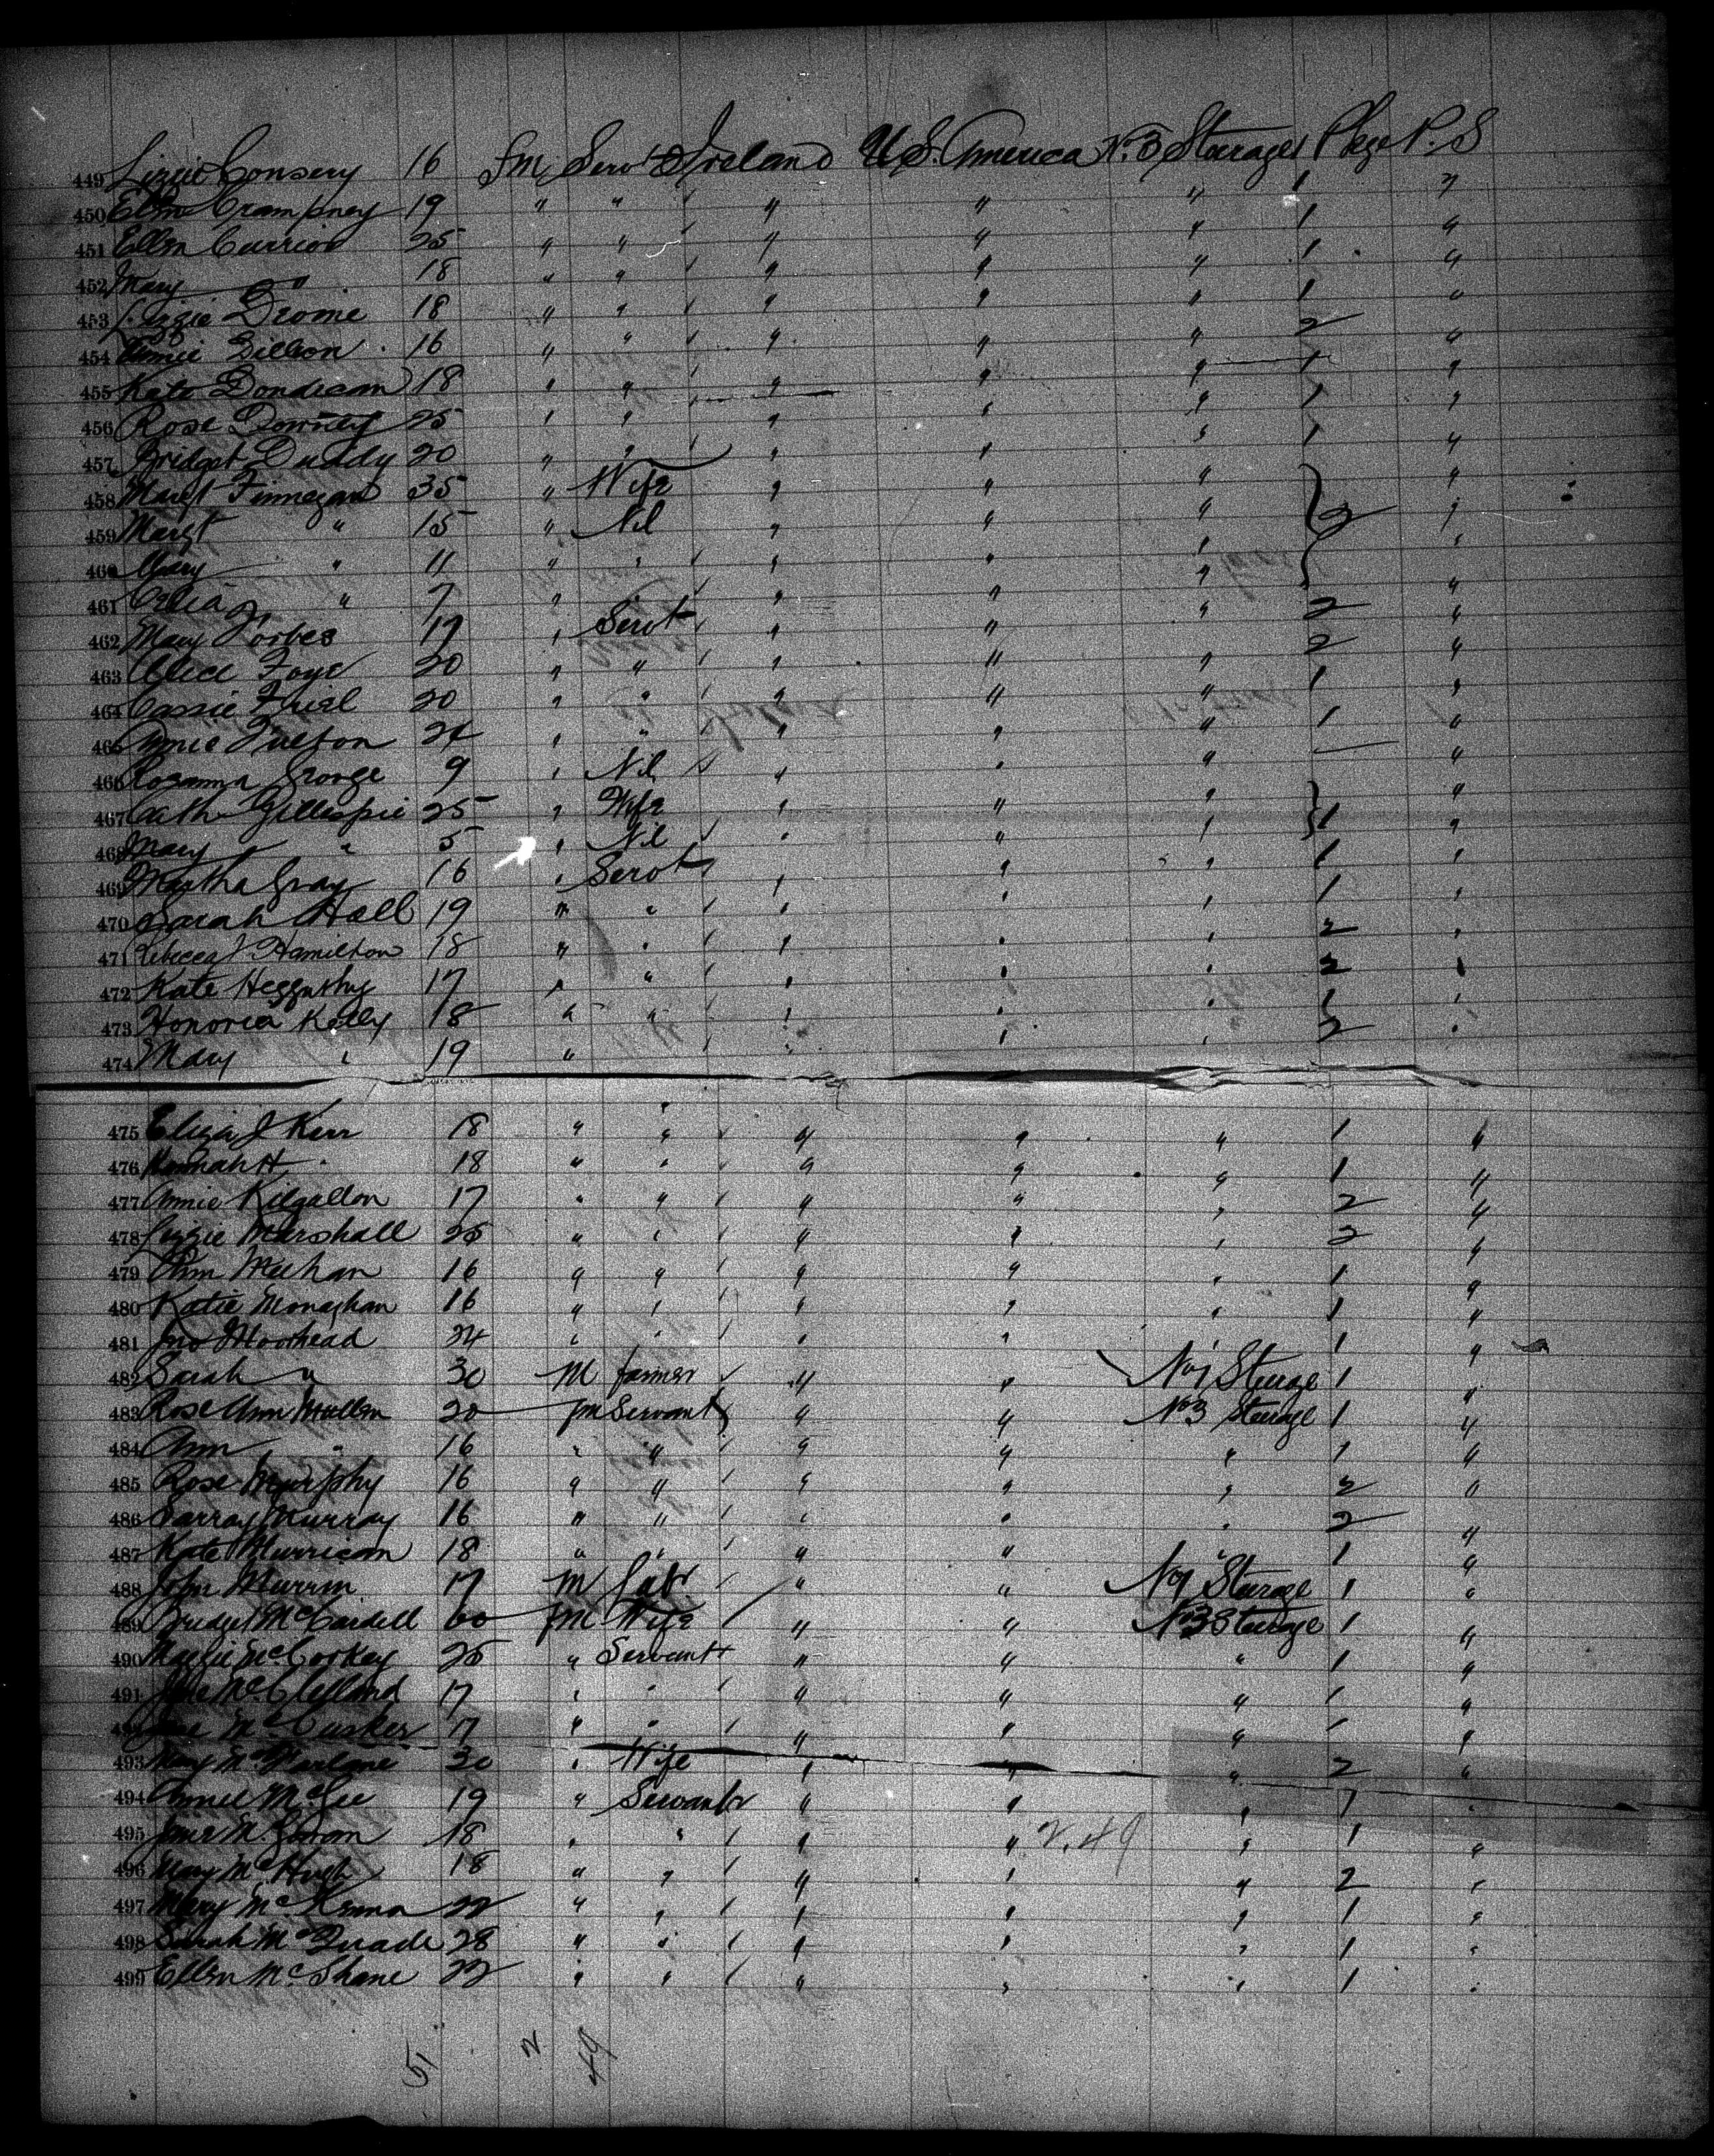 449 Lizzie Consery 16 fm Servt Ireland U.S. America No. 3 Steerage 1 Pkge N.S
450 Ellen Crampsey 19 " " " " " 1 "
451 Ellen Currion 25 " " " " " 1 "
452 Mary " 18 " " " " " 1 "
453 Lizzie 18 " " " " " 1 "
454 Annie Dillon 16 " " " " " 2 "
455 Kate Dondican 18 " " " " " 1 "
456 Rose Downey 25 " " " " " 1 "
457 Bridget Duddy 20 " " " " " 1 "
458 Margt Finnegan 35 " Wife " " " "
459 Margt " 15 " Nil " " " 2 "
460 Mary " 11 " " " " " "
461 Celia " 7 " " " " "
462 Mary Forbes 17 " Servt " " " 2 "
463 Alice Foye 20 " " " " " 2 "
464 Cassie Friel 20 " " " " " 1 "
465 Annie Fulton 24 " " " " " 1 "
466 Rosanna George 9 " Nil " " " — "
467 Cath Gillespie 25 " Wife " " " "
468 Mary " 5 " Nil " " " 1 "
469 Martha Gray 16 " Servt " " " 1 "
470 Sarah Hall 19 " " " " " 1 "
471 Rebecca J Hamilton 18 " " " " " 2 "
472 Kate Heggarthy 17 " " " " " 2 "
473 Honoria Kelly 18 " " " " " 1 "
474 Mary " 19 " " " " 2 "
475 Eliza J Kerr 18 " " " " " 1 "
476 Hannah H " 18 " " " " " 1 "
477 Annie Kilgallon 17 " " " " " 2 "
478 Lizzie Marshall 25 " " " " " 2 "
479 Ann Meehan 16 " " " " " 1 "
480 Katie Monaghan 16 " " " " " 1 "
481 Jno Moorhead 24 " " " " " 1 "
482 Sarah " 30 M farmer " " No 1 Steerage 1 "
483 Rose Ann Mullen 20 fm Servant " " No 3 Steerage 1 "
484 Ann " 16 " " " " " 1 "
485 Rose Murphy 16 " " " " " 2 "
486 Murray 16 " " " " " 2 "
487 Kate Murrican 18 " " " " " 1 "
488 John Murrin 17 M Labr " " No 1 Steerage 1 "
489 Bridget McCardell 60 fm Wife " " No 3 Steerage 1 "
490 Maggie McCorkey 25 " Servant " " " 1 "
491 Jane McClelland 17 " " " " " 1 "
McCusker 17 " " " " " 1 "
493 Mary McFarlane 30 " Wife " " " 2 "
494 Annie McGee 19 " Servant " " " 1 "
495 Jane McGowan 18 " " " " 2.49 " 1 "
496 Mary McHugh 18 " " " " " 2 "
497 Mary McKenna 22 " " " " " 1 "
498 Sarah McQuade 28 " " " " " 1 "
499 Ellen McShane 22 " " " " " 1 "
51 2 49